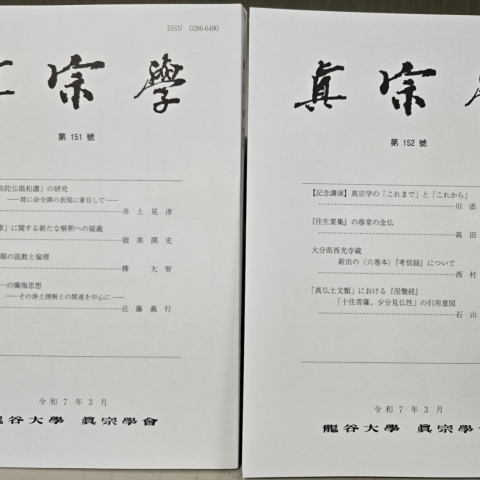 ISSN 0286-6480
宗學
第 151 號
陀仏偈和讃」の研究
――特に命令調の表現に着目して――
井 上 見 淳
」に関する新たな解釈への疑義
能 美 潤 史
類の説教と倫理
大 智
一の懺悔思想
――その浄土理解との関連を中心に――
近 藤 義 行
令 和 7 年 3 月
谷大學 眞宗學會
眞宗
第 152 號
【記念講演】真宗学の「これまで」と「これから」
川 添
『往生要集』の尋常の念仏
高 田
大分県西光寺蔵
新出の〈六巻本〉『考信録』について
西 村
「真仏土文類」における『涅槃経』
「十住菩薩、少分見仏性」の引用意図
石 山
令 和 7 年 3 月
龍谷大學 眞宗學